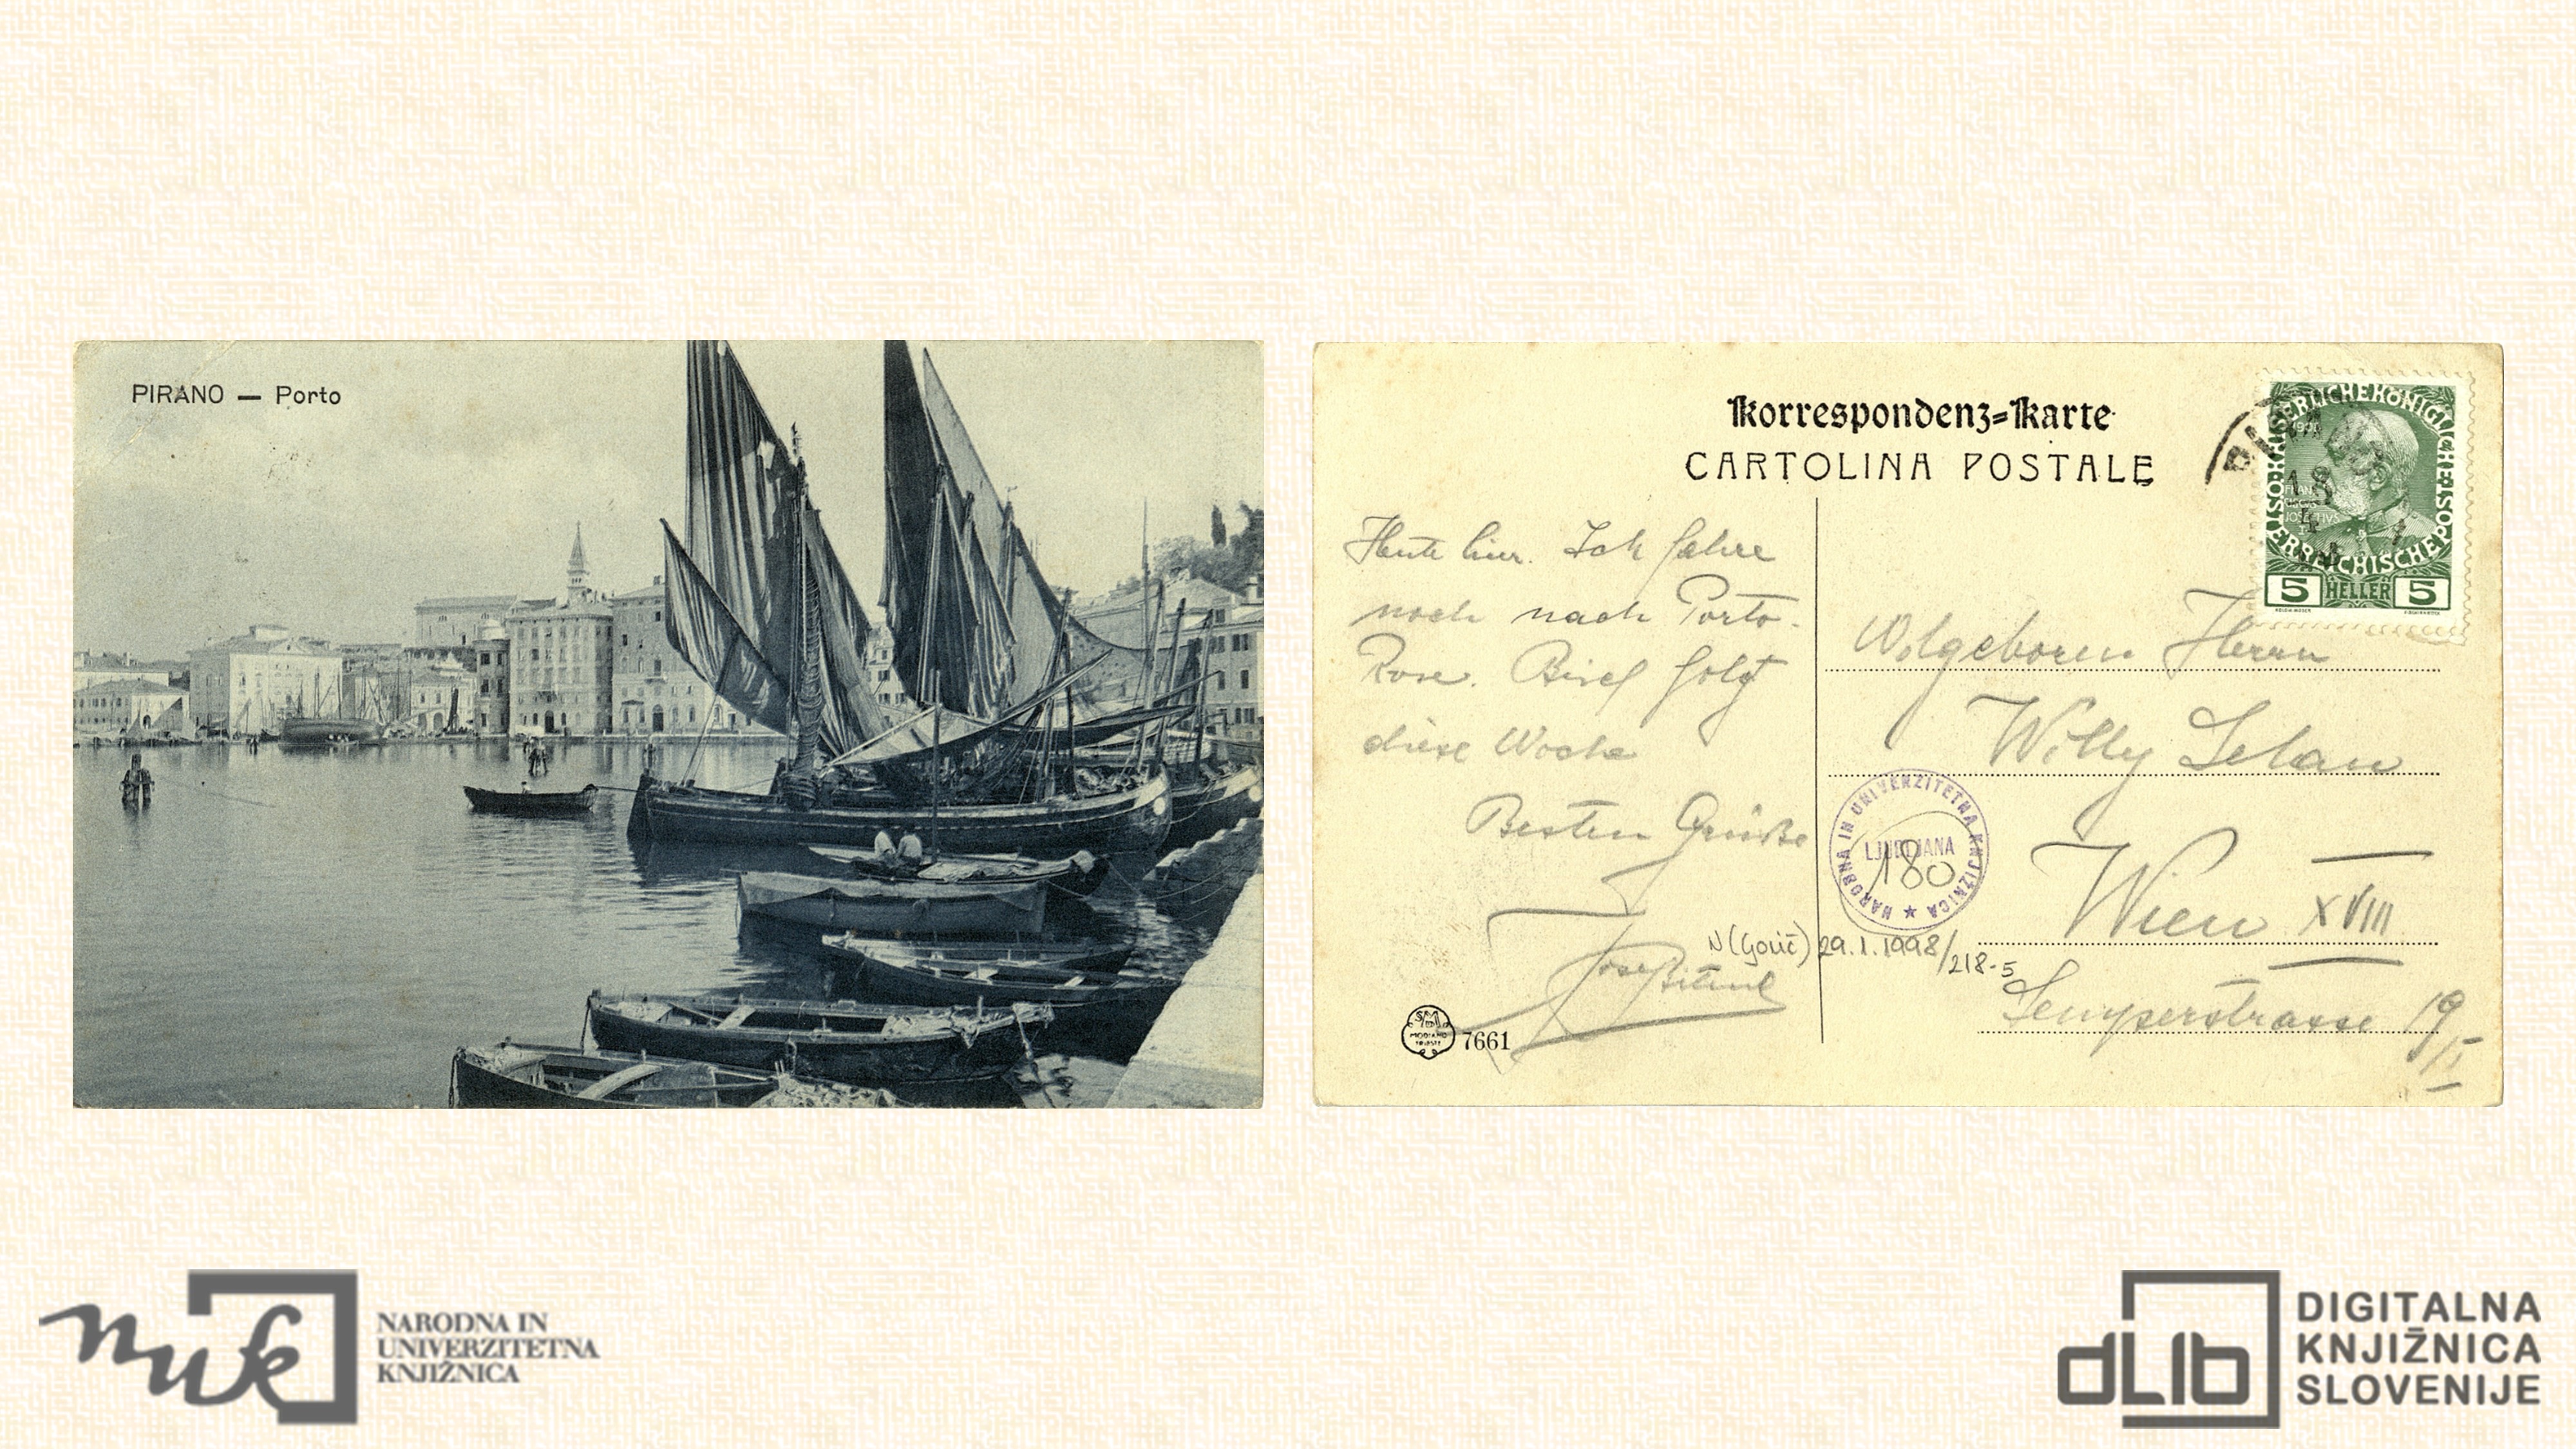 PIRANO — Porto
Korrespondenz=Karte
CARTOLINA POSTALE
Heute hier. Ich fahre
noch nach Porto-
Rose. Brief folgt
diese Woche
Besten Grüße
Josef
7661
KAISERLICHE KÖNIGLICHE ÖSTERREICHISCHE POST
5 HELLER 5
Wolgeboren Herrn
Willy
NARODNA IN UNIVERZITETNA KNJIŽNICA
LJUBLJANA
180
Wien XVIII
N (Gorič) 29.1.1998/218-5
Semperstrasse 19
nuk
NARODNA IN
UNIVERZITETNA
KNJIŽNICA
dLib
DIGITALNA
KNJIŽNICA
SLOVENIJE